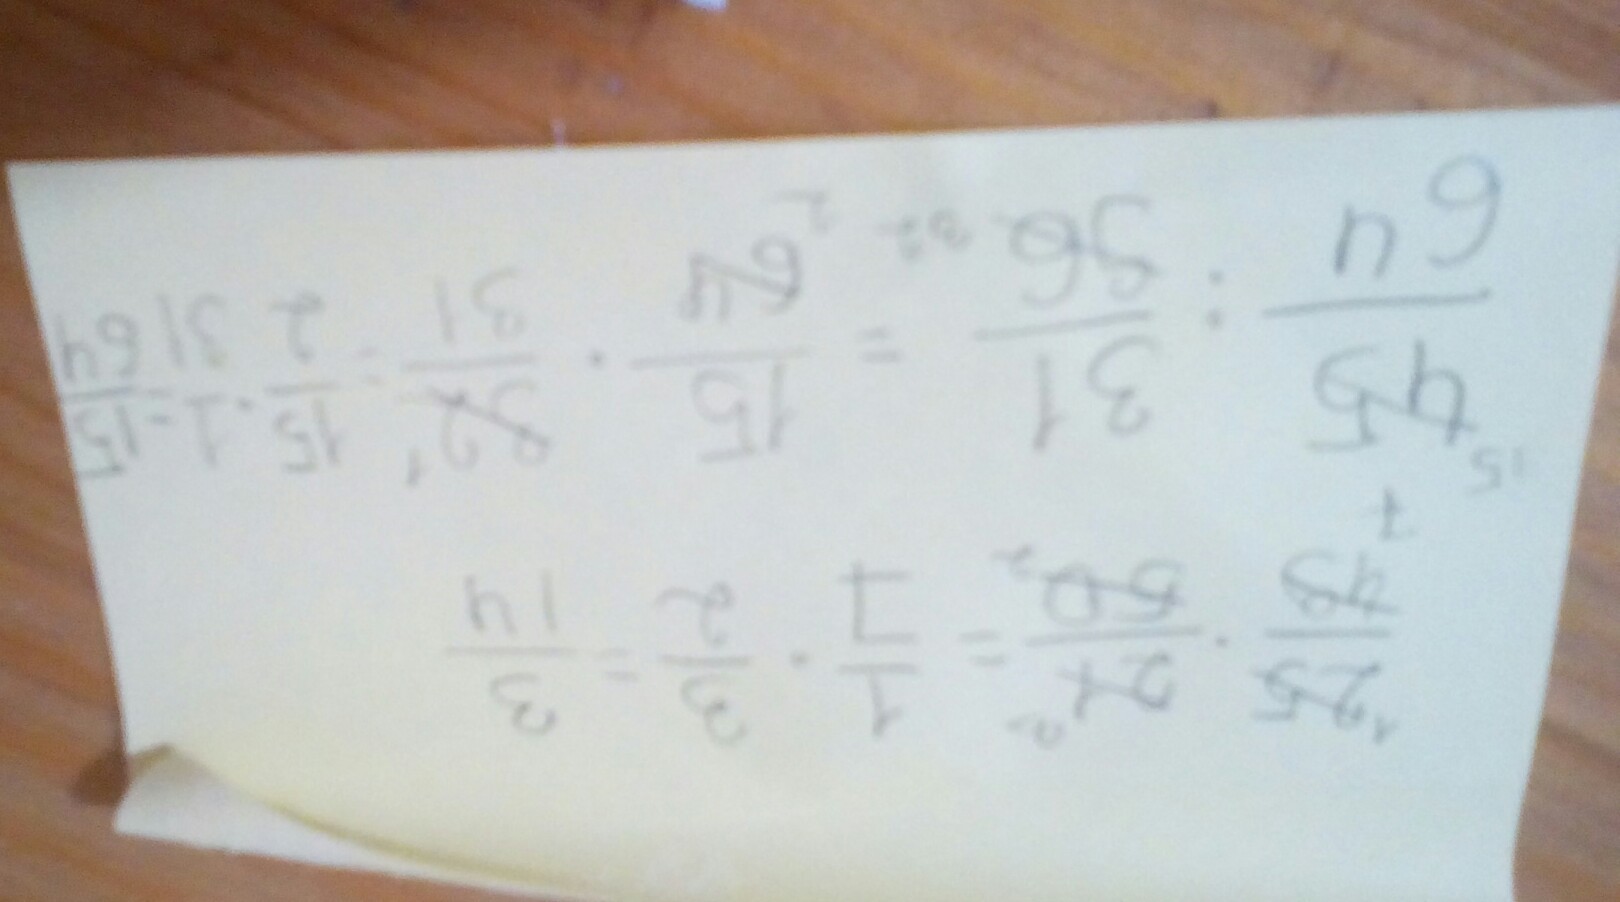 25/49 · 21/50 = 1/7 · 3/2 = 3/14
45/64 : 31/96 = 15/64 · 32/31 = 15/2 · 1/31 = 15/64